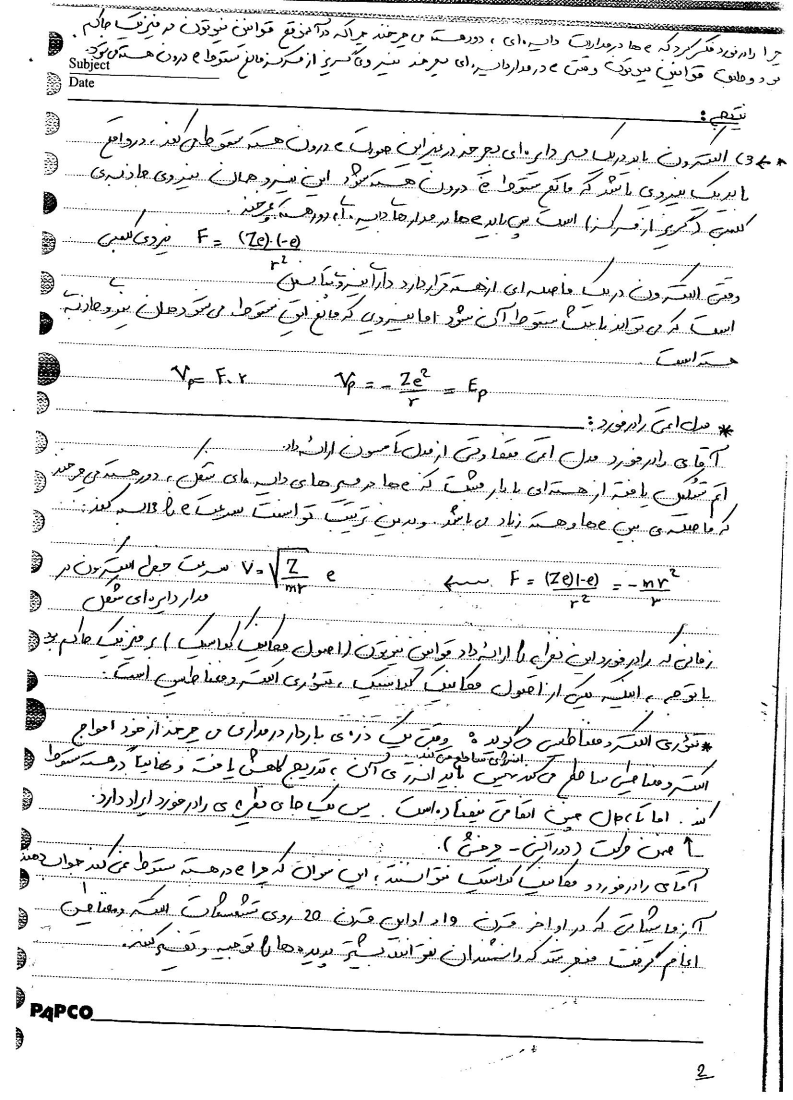 چرا رادرفورد فکر کرد که e ها در مدارات دایره ای ، دور هسته می چرخند چرا که در آن موقع قوانین نیوتون در فیزیک حاکم
بود و طبق قوانین نیوتون وقتی e در مدار دایره ای بچرخد نیروی گریز از مرکز مانع سقوط e درون هسته می شود
Subject
Date
نتیجه :
* ← (3 الکترون باید در یک مسیر دایره ای بچرخد در غیر این صورت e درون هسته سقوط می کند ، در واقع
باید یک نیروی باشد که مانع سقوط e درون هسته شود این نیرو همان نیروی جاذبه ی
کلمبی (گریز از مرکز) است پس باید e ها در مدارها دایره ای دور هسته بچرخند .
نیروی کلمبی F = (Ze).(-e) / r²
وقتی الکترون در یک فاصله ای از هسته قرار دارد دارای انرژی پتانسیل
است که می تواند باعث سقوط آن شود اما نیروی که مانع این سقوط می شود همان نیرو جاذبه
هسته است .
Vₚ = F.r Vₚ = - Ze² / r = Eₚ
* مدل اتمی رادرفورد :
آقای رادرفورد مدل اتمی متفاوتی از مدل تامسون ارائه داد .
اتم تشکیل یافته از هسته ای با بار مثبت که e ها در مسیرهای دایره ای شکل ، دور هسته می چرخند
که فاصله ی بین e ها و هسته زیاد می باشد . و بدین ترتیب توانست سرعت e را محاسبه کند :
F = (Ze)(-e) / r² = - mv² / r ← V = √(Z / mr) e سرعت خطی الکترون در
مدار دایره ای شکل
زمانی که رادرفورد این نظریه را ارائه داد قوانین نیوتون (اصول مکانیک کلاسیک) بر فیزیک حاکم بود
با توجه به اینکه یکی از اصول مکانیک کلاسیک ، تئوری الکترومغناطیس است :
* تئوری الکترومغناطیس می گوید : وقتی یک ذره ی باردار در مداری می چرخد از خود امواج
الکترومغناطیس ساطع می کند پس باید انرژی آن به تدریج کاهش یافته و نهایتاً در هسته سقوط
انرژی ساطع می کند
کند . اما تا به حال چنین اتفاقی نیفتاده است . پس یک جای نظریه ی رادرفورد ایراد دارد .
↑ ضمن حرکت (دورانی - چرخشی) .
آقای رادرفورد و مکانیک کلاسیک نتوانستند به این سوال که چرا e در هسته سقوط نمی کند جواب دهند
آزمایشاتی که در اواخر قرن 19 و اوایل قرن 20 روی تشعشعات الکترومغناطیس
انجام گرفت منجر شد که دانشمندان بتوانند بیشتر پدیده ها را توجیه و تفسیر کنند .
PAPCO
2